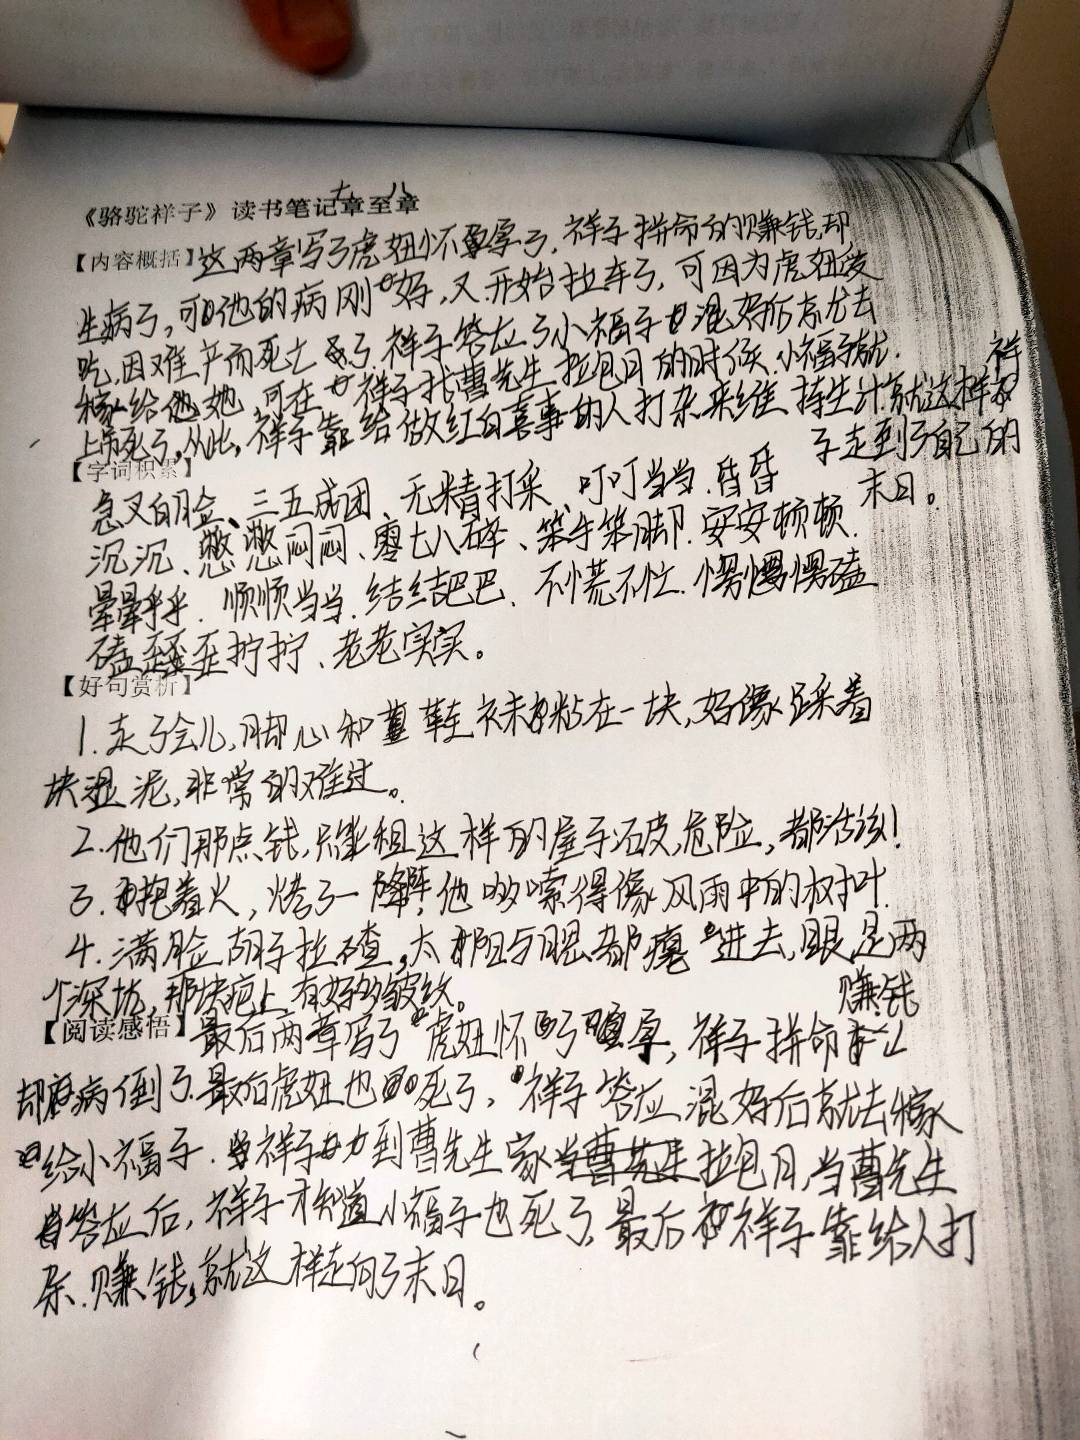 《骆驼祥子》读书笔记十八章至章
【内容概括】这两章写了虎妞怀孕了，祥子拼命的赚钱，却
生病了，可他的病刚好，又开始拉车了，可因为虎妞爱
吃，因难产而死亡了，祥子答应了小福子混好后就去
嫁给她，可在祥子找曹先生拉包月的时候，小福子就
上吊死了，从此，祥子靠给做红白喜事的人打杂来维持生计，就这样祥
子走到了自己的
末日。
【字词积累】
急叉白脸、三五成团、无精打采、叮叮当当、昏昏
沉沉、憋憋闷闷、零七八碎、笨手笨脚、安安顿顿、
晕晕乎乎、顺顺当当、结结巴巴、不慌不忙、愣愣磕
磕、歪歪拧拧、老老实实。
【好句赏析】
1.走了会儿，脚心和鞋袜粘在一块，好像踩着
块湿泥，非常的难过。
2.他们那点钱，只能租这样的屋子；破，危险，都活该！
3.抱着火，烤了一阵，他哆嗦得像风雨中的树叶.
4.满脸胡子拉碴，太阳与腮都瘪进去，眼是两
个深坑，那块疤上有好多皱纹。
【阅读感悟】最后两章写了虎妞怀了孕，祥子拼命赚钱
却病倒了.最后虎妞也死了，祥子答应混好后就去嫁
给小福子.祥子到曹先生家拉包月，当曹先生
答应后，祥子才知道小福子也死了，最后祥子靠给人打
杂.赚钱，就这样走向了末日。